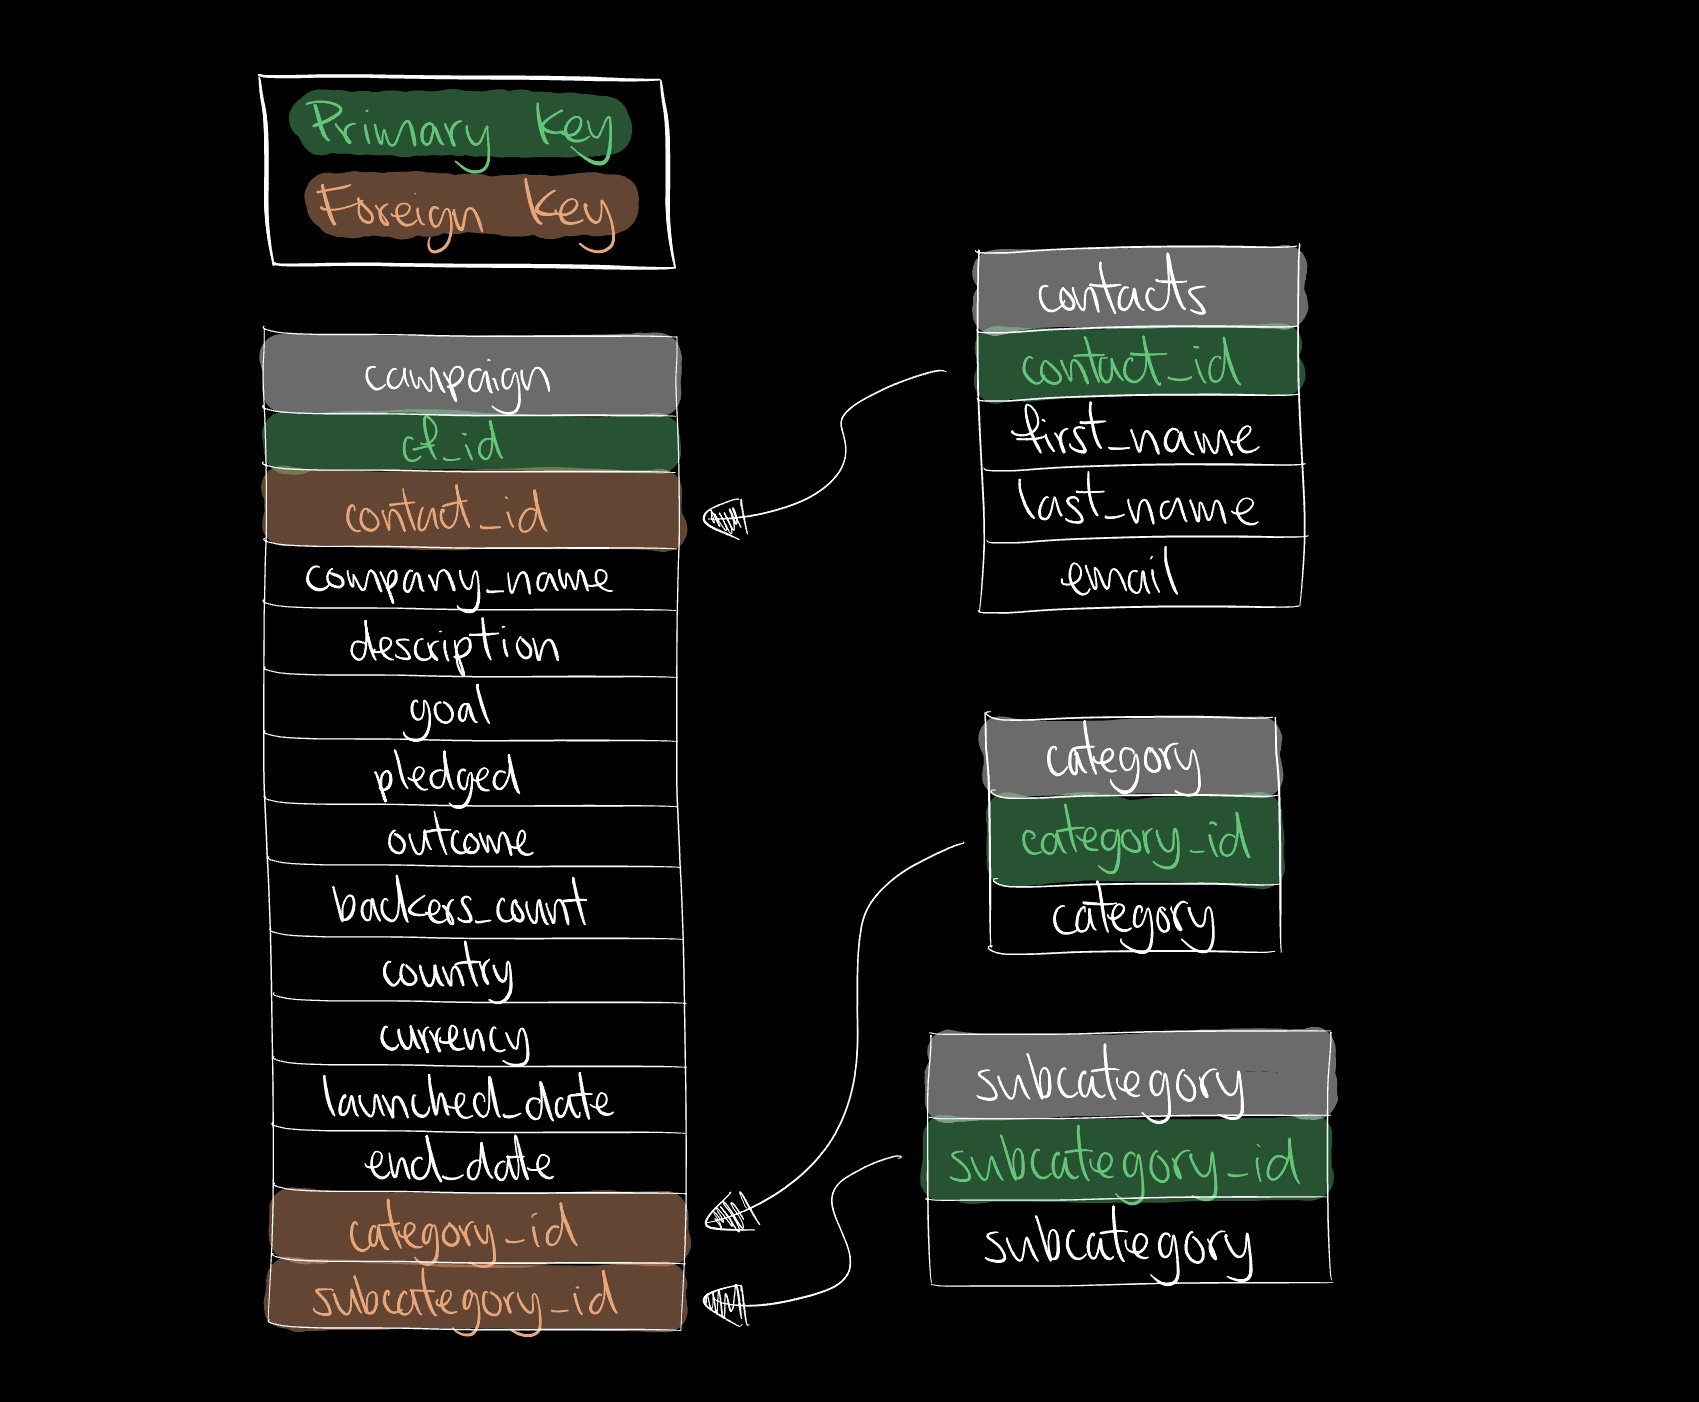 Primary Key
Foreign Key
campaign
cf_id
contact_id
company_name
description
goal
pledged
outcome
backers_count
country
currency
launched_date
end_date
category_id
subcategory_id
contacts
contact_id
first_name
last_name
email
category
category_id
category
subcategory
subcategory_id
subcategory